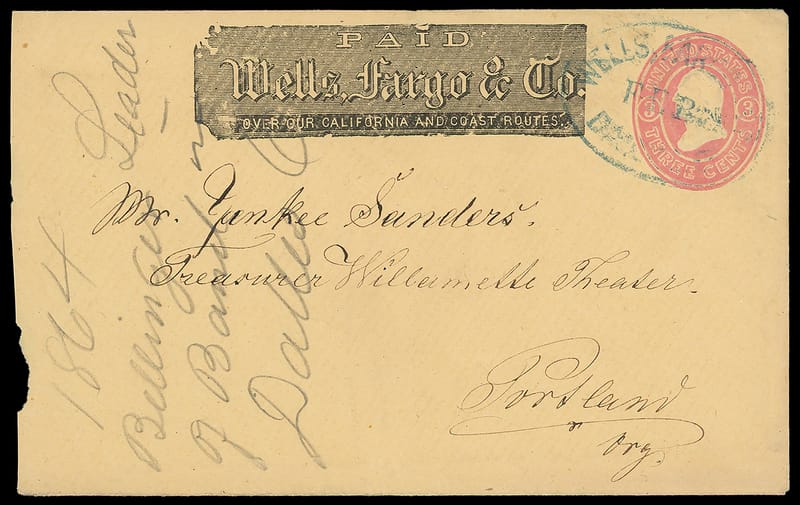 PAID
Wells, Fargo & Co.
OVER OUR CALIFORNIA AND COAST ROUTES.
WELLS,
FEB
UNITED STATES
3 3
THREE CENTS
Mr. Yankee Sanders.
Treasurer Willamette Theater.
Portland
Org.
1864
Bellinger Leader
of Band
Dalles